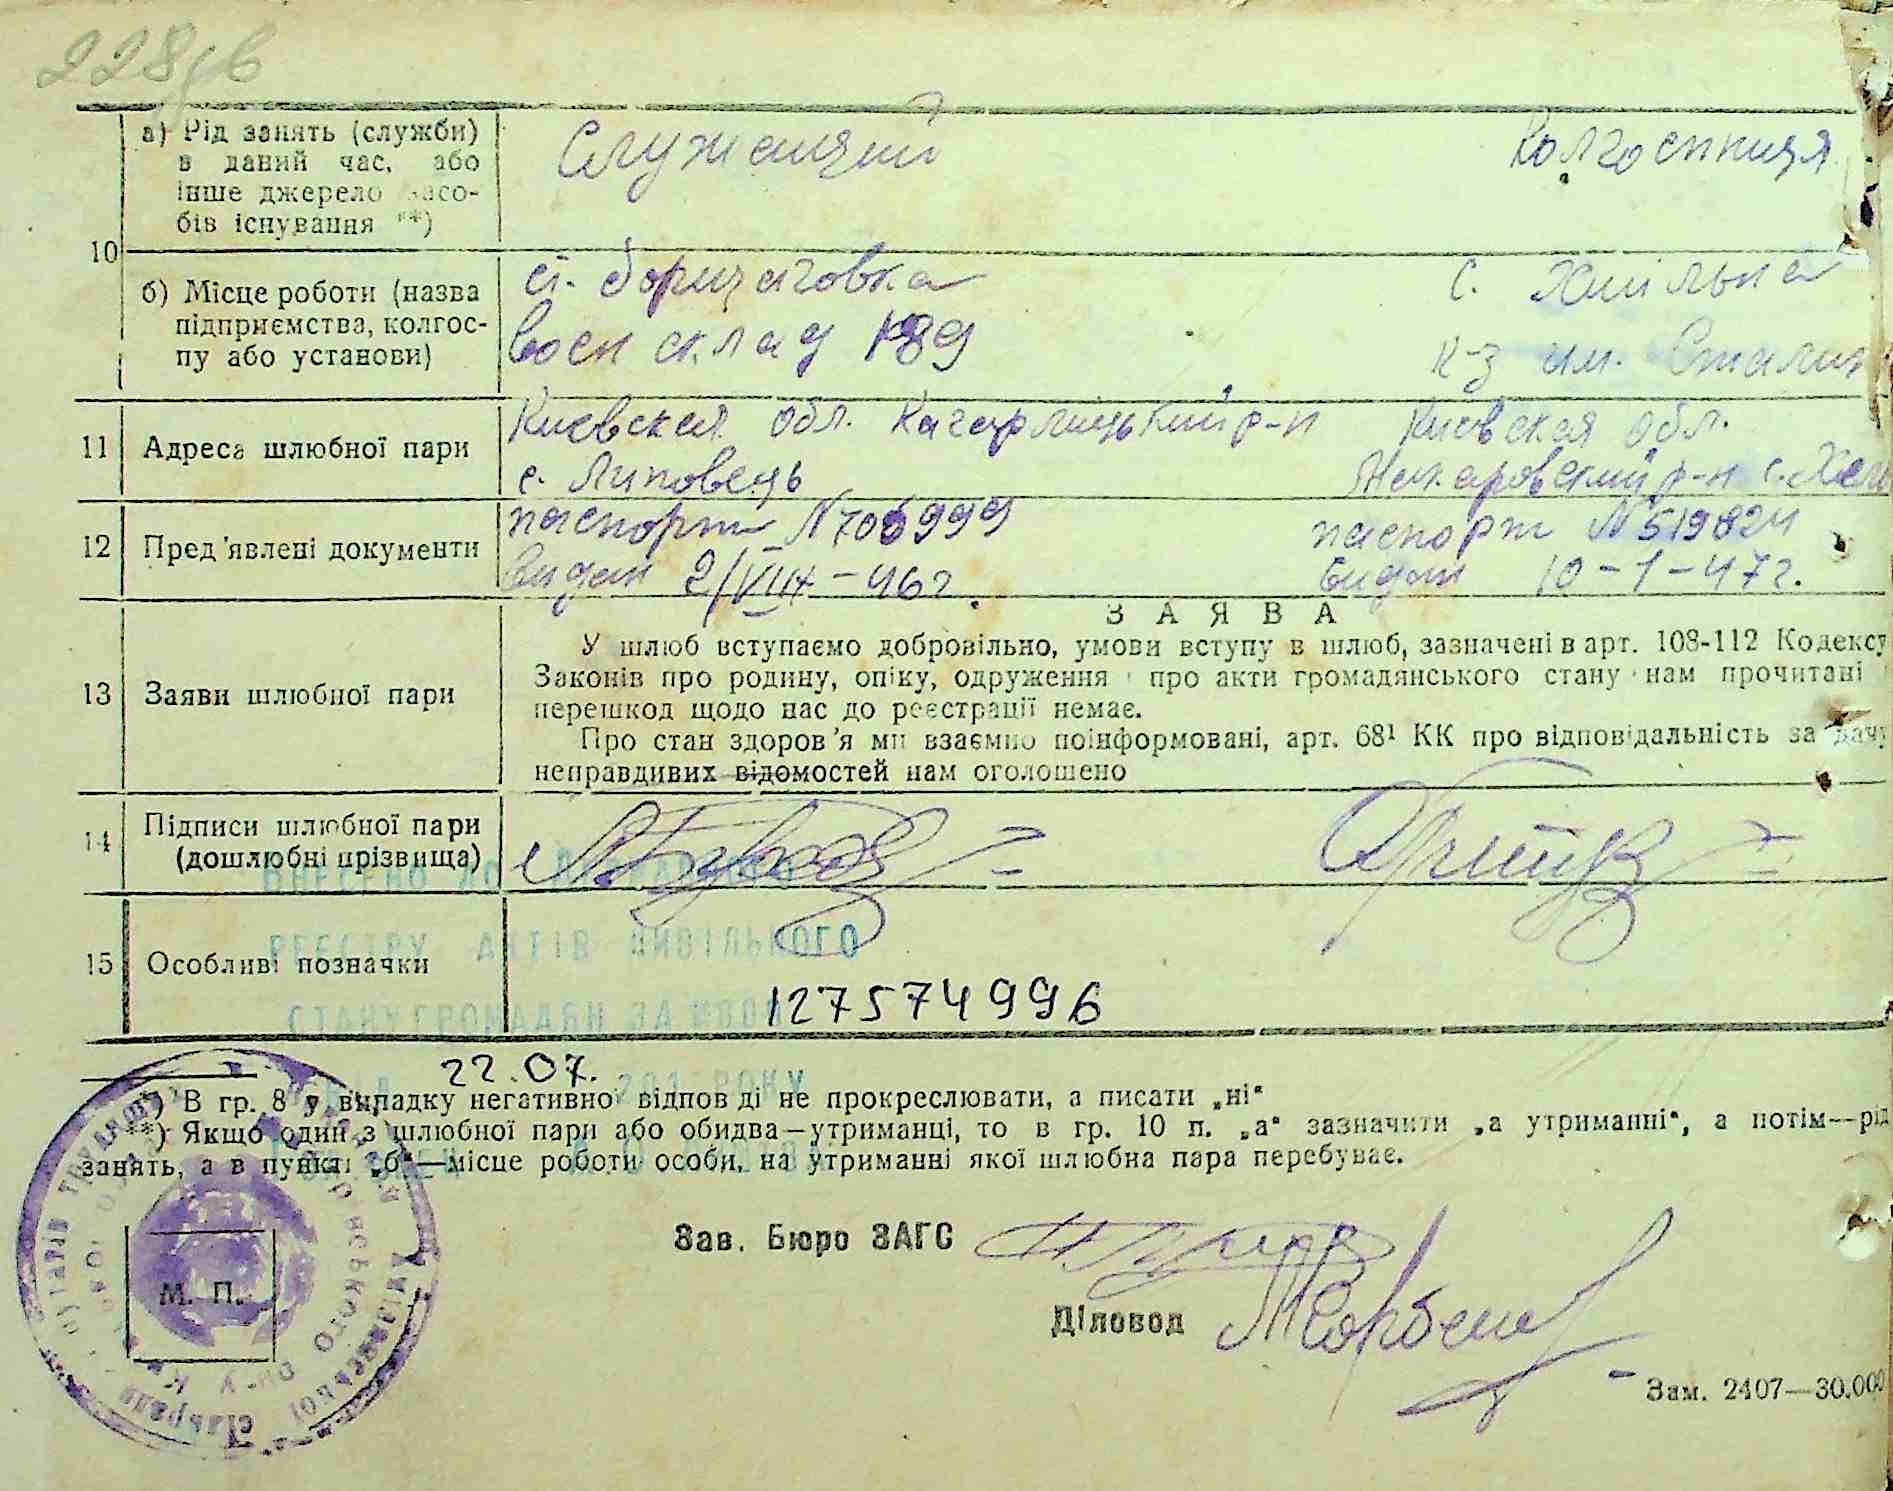 228/в
а) Рід занять (служби) в даний час, або інше джерело засобів існування **)
Служащий
Колгоспниця
10
б) Місце роботи (назва підприємства, колгоспу або установи)
ст. Борщаговка
с. Хмільна
воен склад
к-з им. Сталин
11 Адреса шлюбної пари
Киевская обл. Кагарлицький р-н
Киевская обл.
с. Липовець
Макаровский р-н с.
12 Пред'явлені документи
паспорт N 706999
паспорт N 519824
видан 2/VIII-46 г.
видан 10-1-47 г.
ЗАЯВА
13 Заяви шлюбної пари
У шлюб вступаємо добровільно, умови вступу в шлюб, зазначені в арт. 108-112 Кодексу
Законів про родину, опіку, одруження про акти громадянського стану нам прочитані
перешкод щодо нас до реєстрації немає.
Про стан здоров'я ми взаємно поінформовані, арт. 68¹ КК про відповідальність за дачу
неправдивих відомостей нам оголошено
14 Підписи шлюбної пари
(дошлюбні прізвища)
ВНЕСЕНО ДО ДЕРЖАВНОГО
РЕЄСТРУ АКТІВ ЦИВІЛЬНОГО
15 Особливі позначки
СТАНУ ГРОМАДЯН ЗА
127574996
22.07.
201 РОКУ
*) В гр. 8 у випадку негативної відповіді не прокреслювати, а писати „ні“
**) Якщо один з шлюбної пари або обидва—утриманці, то в гр. 10 п. „а“ зазначити „а утриманні“, а потім—рід
занять, а в пункті „б“—місце роботи особи, на утриманні якої шлюбна пара перебуває.
Зав. Бюро ЗАГС
М. П.
Діловод
Зам. 2407—30.000